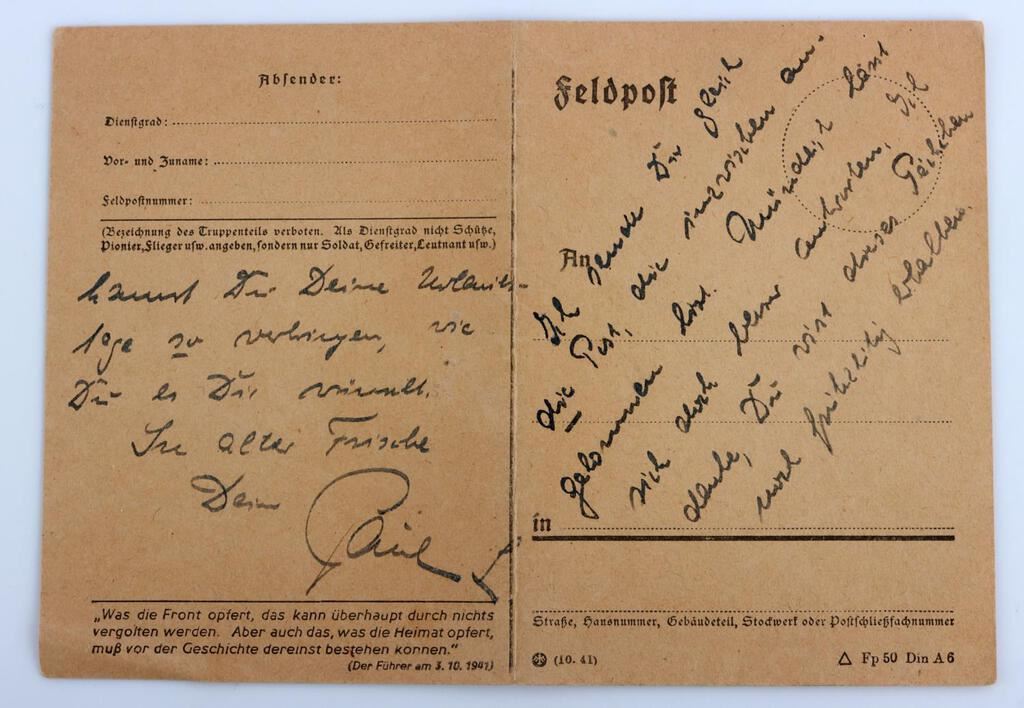 Absender:
Dienstgrad:
Vor- und Zuname:
Feldpostnummer:
(Bezeichnung des Truppenteils verboten. Als Dienstgrad nicht Schütze,
Pionier, Flieger usw. angeben, sondern nur Soldat, Gefreiter, Leutnant usw.)
kannst Du Deine Urlaubs-
tage so verbringen, wie
Du es Dir wünscht.
In alter Frische
Dein
Paul
„Was die Front opfert, das kann überhaupt durch nichts
vergolten werden. Aber auch das, was die Heimat opfert,
muß vor der Geschichte dereinst bestehen können.“
(Der Führer am 3. 10. 1941)
Feldpost
An
Ich sende Dir gleich
die Post, die inzwischen an-
gekommen ist. Mündlich lässt
sich doch besser antworten. Ich
denke, Du wirst dieses Päckchen
noch frühzeitig erhalten.
in
Straße, Hausnummer, Gebäudeteil, Stockwerk oder Postschließfachnummer
(10. 41)
Fp 50 Din A 6